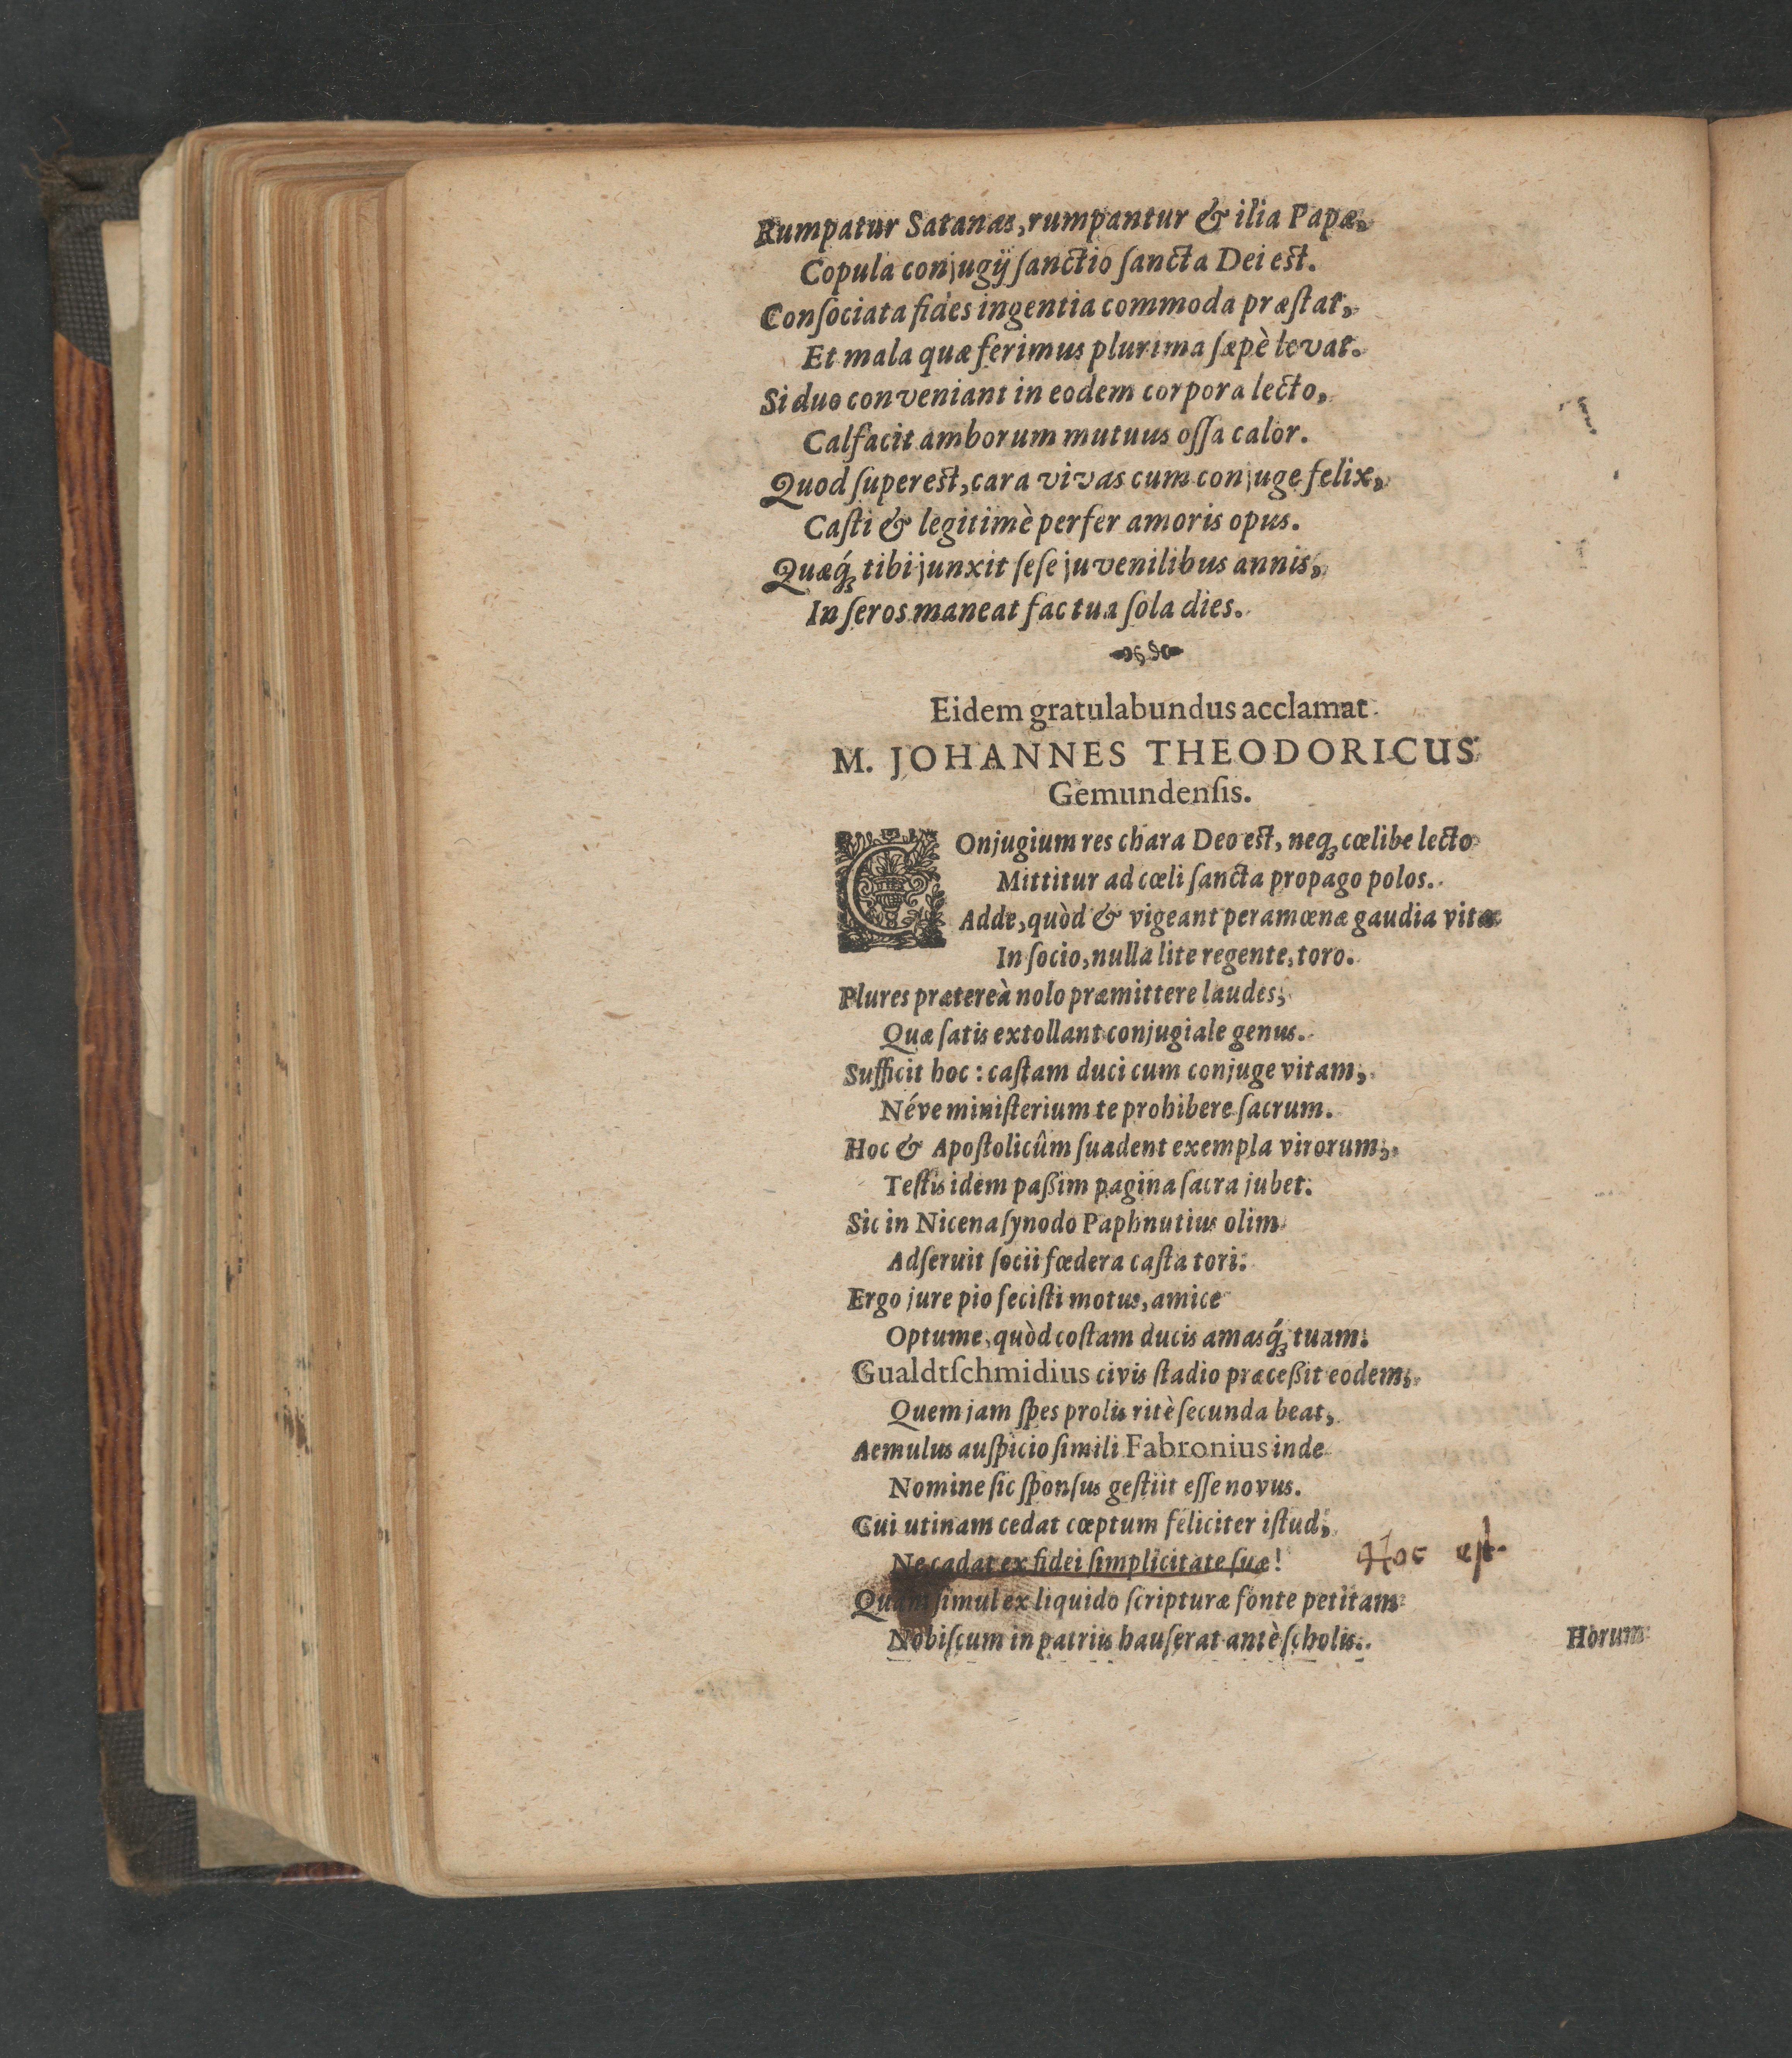 Rumpatur Satanas, rumpantur & ilia Papæ,
Copula conjugij ſanctio ſancta Dei est.
Conſociata fides ingentia commoda præſtat,
Et mala quæ ferimus plurima ſæpè levat.
Si duo conveniant in eodem corpora lecto,
Calfacit amborum mutuus oſſa calor.
Quod ſuperest, cara vivas cum conjuge felix,
Caſti & legitimè perfer amoris opus.
Quæq́; tibi junxit ſeſe juvenilibus annis,
In ſeros maneat fac tua ſola dies.
Eidem gratulabundus acclamat
M. JOHANNES THEODORICUS
Gemundenſis.
COnjugium res chara Deo est, neq; cœlibe lecto
Mittitur ad cœli ſancta propago polos.
Adde, quòd & vigeant peramœnæ gaudia vitæ
In ſocio, nulla lite regente, toro.
Plures prætereà nolo præmittere laudes,
Quæ ſatis extollant conjugiale genus.
Sufficit hoc: caſtam duci cum conjuge vitam,
Néve miniſterium te prohibere ſacrum.
Hoc & Apoſtolicûm ſuadent exempla virorum,
Teſtis idem paßim pagina ſacra jubet.
Sic in Nicena ſynodo Paphnutius olim
Adſeruit ſocii fœdera caſta tori.
Ergo jure pio feciſti motus, amice
Optume, quòd coſtam ducis amasq́; tuam.
Gualdtſchmidius civis ſtadio præceßit eodem,
Quem jam ſpes prolis ritè ſecunda beat,
Aemulus auſpicio ſimili Fabronius inde
Nomine ſic ſponſus geſtiit eſſe novus.
Cui utinam cedat cœptum feliciter iſtud,
Ne cadat ex fidei ſimplicitate ſuæ! Hoc est.
Quam ſimul ex liquido ſcripturæ fonte petitam
Nobiſcum in patriis hauſerat antè ſcholis.
Horum